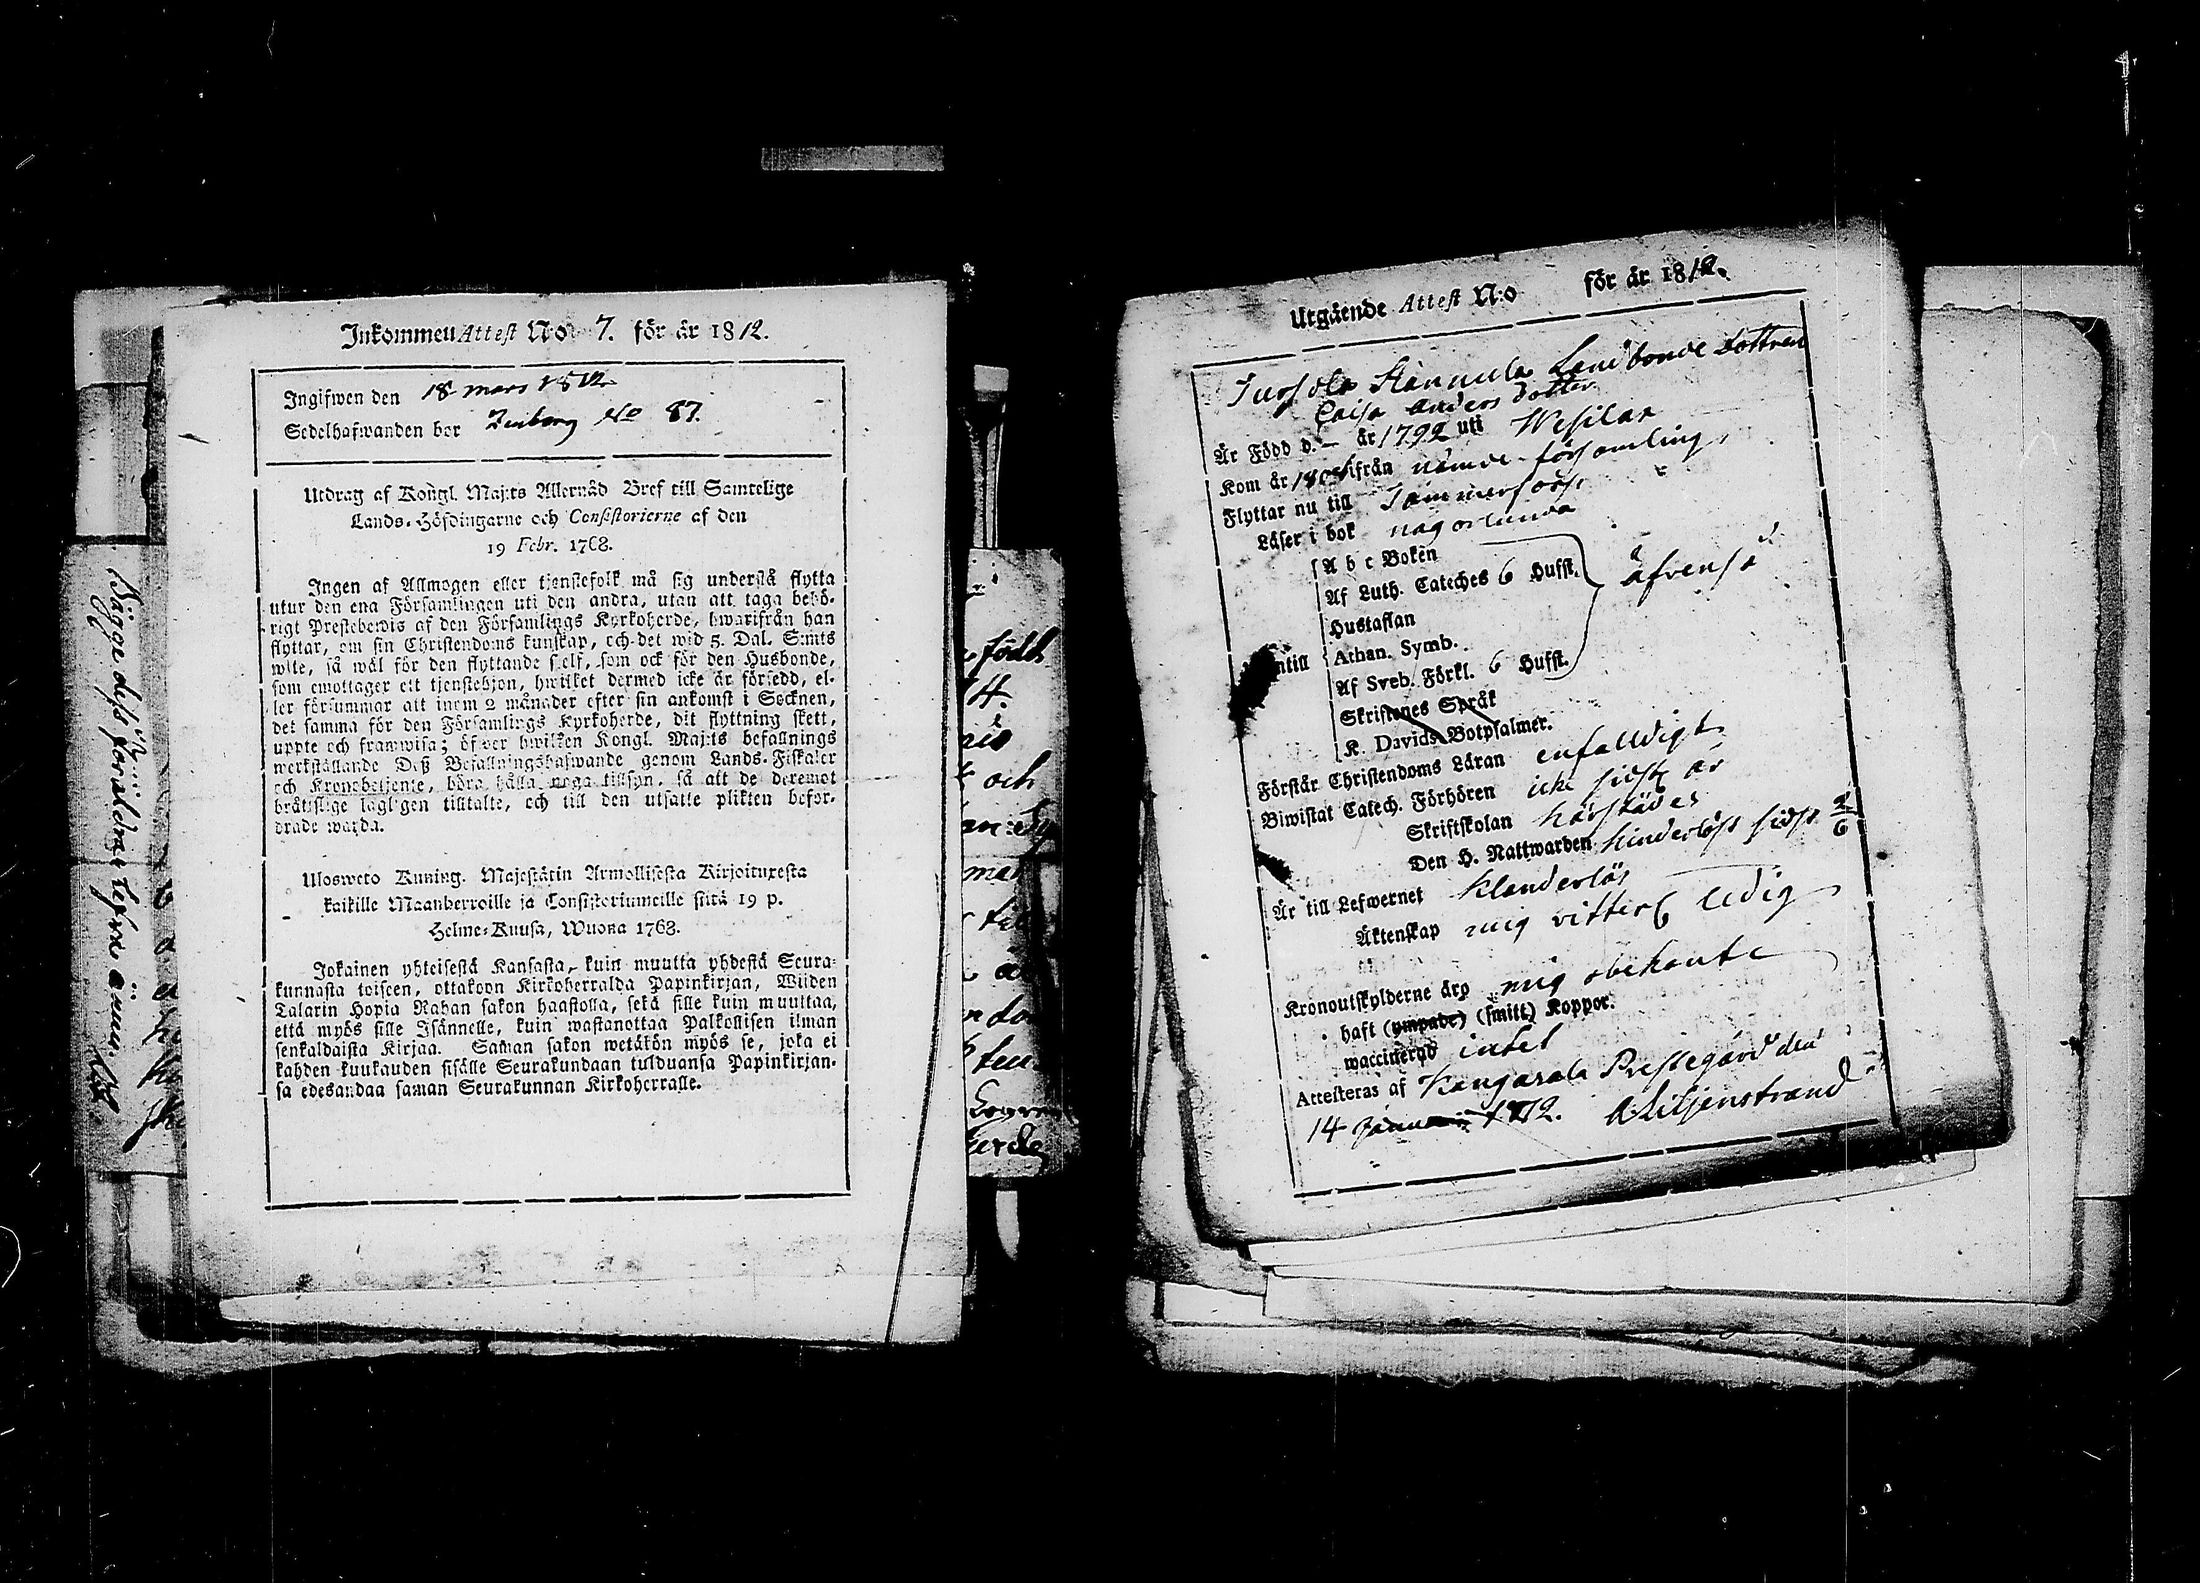 Inkommen Attest No 7. för år 1812.
Ingifwen den 18 mars 1812
Sedelhafwanden bor No 87.
Utdrag af Kongl. Maj:ts Allernåd Bref till Samtelige
Lands-Höfdingarne och Consistorierne af den
19 Febr. 1768.
Ingen af Allmogen eller tjenstefolk må sig understå flytta
utur den ena Församlingen uti den andra, utan att taga behö-
rigt Prestebewis af den Församlings Kyrkoherde, hwarifrån han
flyttar, om sin Christendoms kunskap, och det wid 5. Dal. S:mts
wite, så wäl för den flyttande sjelf, som ock för den Husbonde,
som emottager ett tjenstehjon, hwilket dermed icke är försedd, el-
ler försummar att inom 2 månader efter sin ankomst i Socknen,
det samma för den Församlings Kyrkoherde, dit flyttning skett,
uppte och framwisa; öfwer hwilken Kongl. Maj:ts befallnings
werkställande Deß Befallningshafwande genom Lands-Fiskaler
och Kronobetjente, böra hålla noga tillsyn, så att de deremot
brottslige lagligen tilltalte, och till den utsatte plikten befor-
drade warda.
Ulosweto Kuning. Majestätin Armollisesta Kirjoituxesta
kaikille Maanherroille ja Consistoriumeille siitä 19 p.
Helme-Kuusa, Wuona 1768.
Jokainen yhteisestä Kansasta, kuin muutta yhdestä Seura-
kunnasta toiseen, ottakoon Kirkoherralda Papinkirjan, Wiiden
Talarin Hopia Rahan sakon haastolla, sekä sille kuin muuttaa,
että myös sille Isännelle, kuin wastanottaa Palkollisen ilman
senkaldaista Kirjaa. Saman sakon wetäkön myös se, joka ei
kahden kuukauden sisälle Seurakundaan tulduansa Papinkirjan-
sa edesandaa saman Seurakunnan Kirkoherralle.
Bägge dess föräldrar lefva ännu.
född
14.
och
Utgående Attest N:o för år 1812.
Landbonde dottren
Caisa Anders dotter
Är Född d. — år 1792 uti Wesilax
Kom år 1808 ifrån nämde församling
Flyttar nu till Tammerfors
Läser i bok någorlunda
A b c Boken
Af Luth. Cateches 6 Hufst.
Hustaflan
äfvenså
ntill Athan. Symb.
Af Sveb. Förkl. 6 Hufst.
Skriftenes Språk
K. Davids Botpsalmer.
Förstår Christendoms Läran enfalldigt
Biwistat Catech. Förhören icke sidst år
Skriftskolan härstädes
Den H. Nattwarden hinderlöst sidst 2/6
Är till Lefwernet klanderlös
Äktenskap mig vitterl. ledig
Kronoutskylderne äro mig obekante
haft (ympade) (smitt) Koppor.
waccinerad intet
Attesteras af Kangasala Prestegård den
14 Januari 1812. A Liljenstrand